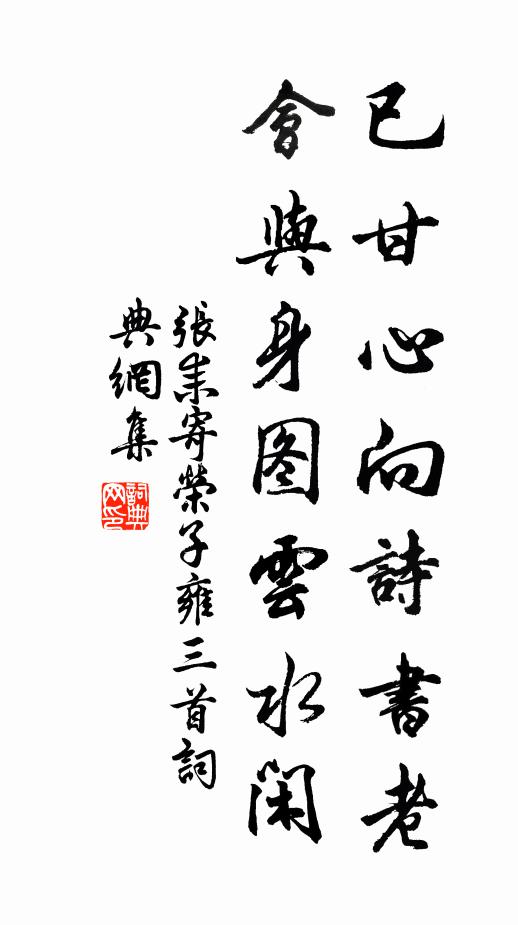 已甘心向詩書老
會與身图雲水闲
張耒寄榮子雍三首詞
典網集
詞典
网印